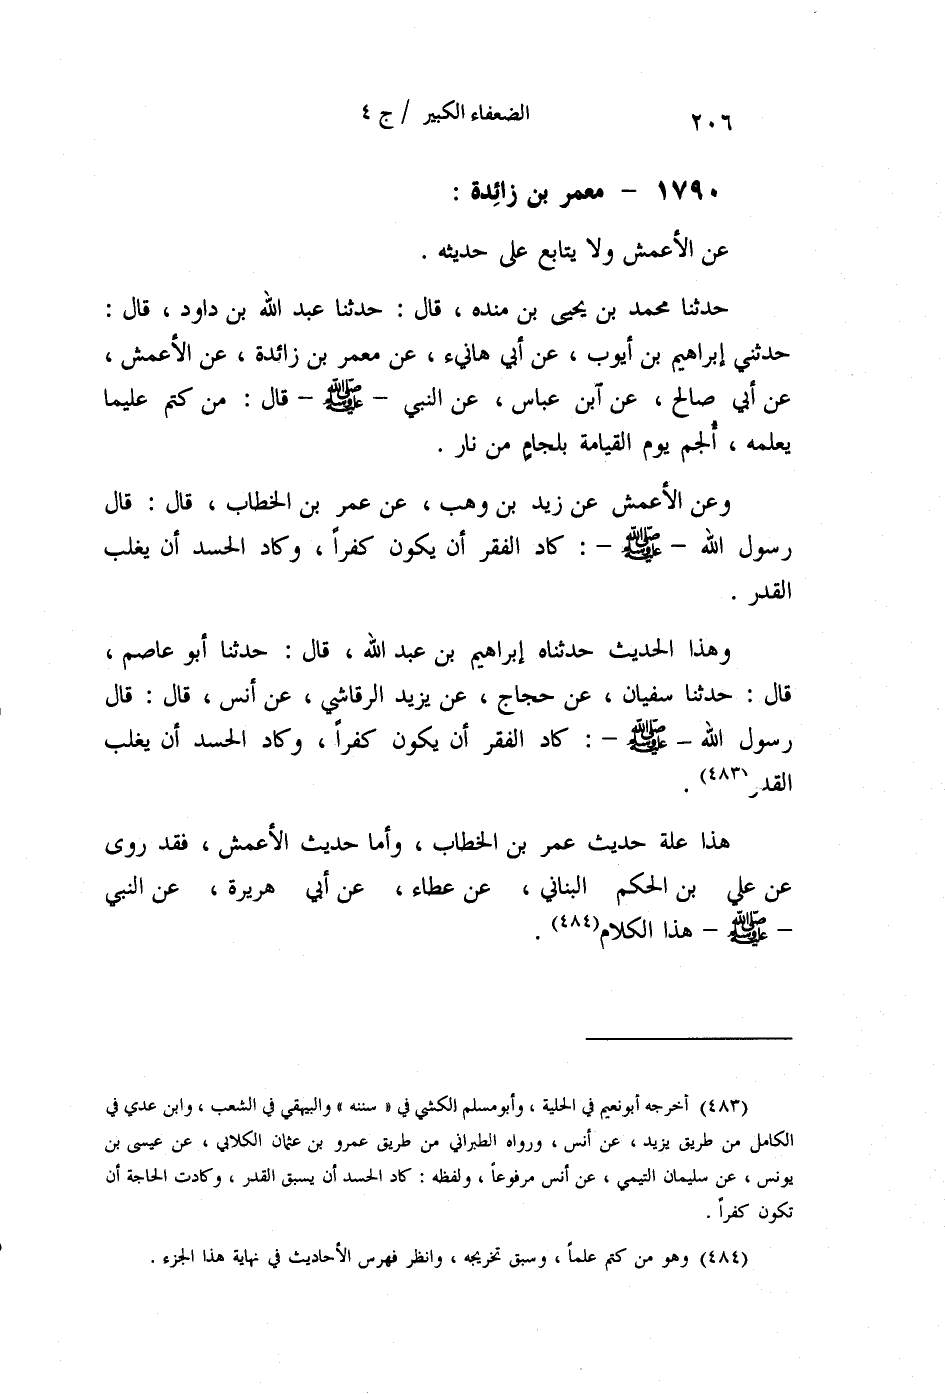 ٢٠٦ الضعفاء الكبير / ج ٤
١٧٩٠ - معمر بن زائِدة :
عن الأعمش ولا يتابع على حديثه .
حدثنا محمد بن يحيى بن منده ، قال : حدثنا عبد الله بن داود ، قال :
حدثني إبراهيم بن أيوب ، عن أبي هانيء ، عن معمر بن زائدة ، عن الأعمش ،
عن أبي صالح ، عن آبن عباس ، عن النبي - ﷺ - قال : من كتم عليما
يعلمه ، أُلجم يوم القيامة بلجامٍ من نار .
وعن الأعمش عن زيد بن وهب ، عن عمر بن الخطاب ، قال : قال
رسول الله - ﷺ - : كاد الفقر أن يكون كفراً ، وكاد الحسد أن يغلب
القدر .
وهذا الحديث حدثناه إبراهيم بن عبد الله ، قال : حدثنا أبو عاصم ،
قال : حدثنا سفيان ، عن حجاج ، عن يزيد الرقاشي ، عن أنس ، قال : قال
رسول الله - ﷺ - : كاد الفقر أن يكون كفراً ، وكاد الحسد أن يغلب
القدر(٤٨٣) .
هذا علة حديث عمر بن الخطاب ، وأما حديث الأعمش ، فقد روى
عن علي بن الحكم البناني ، عن عطاء ، عن أبي هريرة ، عن النبي
- ﷺ - هذا الكلام(٤٨٤) .
(٤٨٣) أخرجه أبونعيم في الحلية ، وأبومسلم الكشي في « سننه » والبيهقي في الشعب ، وابن عدي في
الكامل من طريق يزيد ، عن أنس ، ورواه الطبراني من طريق عمرو بن عثمان الكلابي ، عن عيسى بن
يونس ، عن سليمان التيمي ، عن أنس مرفوعاً ، ولفظه : كاد الحسد أن يسبق القدر ، وكادت الحاجة أن
تكون كفراً .
(٤٨٤) وهو من كتم علماً ، وسبق تخريجه ، وانظر فهرس الأحاديث في نهاية هذا الجزء .